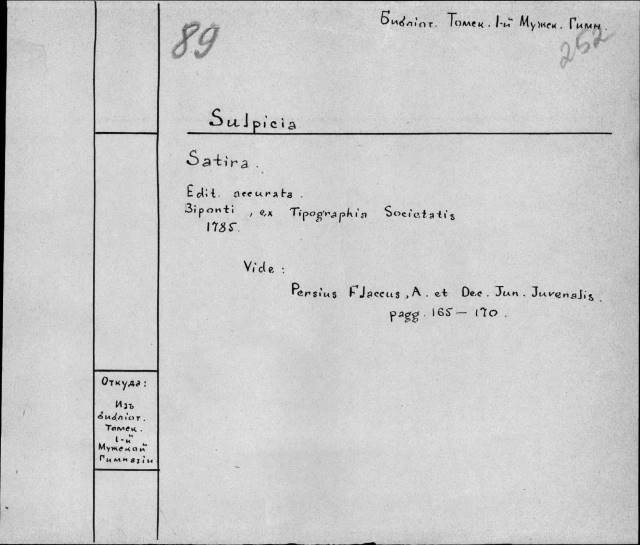 Библіот. Томск. 1-й Мужск. Гимн.
89
252
Sulpicia
Satira.
Edit. accurata.
Biponti, ex Tipographia Societatis
1785.
Vide:
Persius Flaccus, A. et Dec. Jun. Juvenalis.
pagg. 165 — 170.
Откуда:
Изъ
библіот.
Томск.
1-й
Мужской
Гимназіи